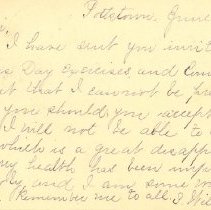 Pottstown, June
I have sent you invit
s Day Exercises and Com
t that I cannot be pre
you should you accept
I will not be able to
which is a great disapp
my health has been imp
and I am some
Remember me to all. I